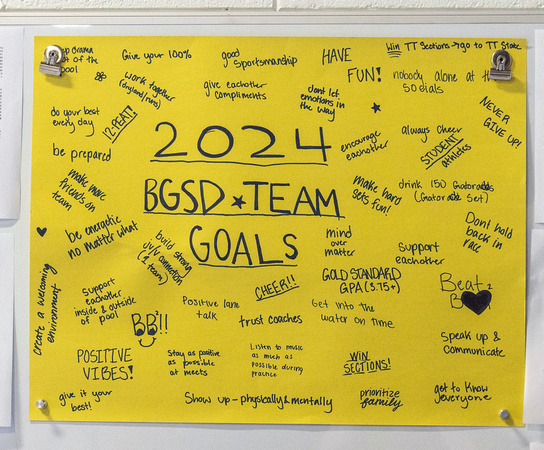 drama
out of the
pool
Give your 100%
good
sportsmanship
HAVE
FUN!
Win TT Sections → go to TT State
work together
(dryland/runs)
give eachother
compliments
dont let
emotions in
the way
nobody alone at th
socials
NEVER
GIVE UP!
do your best
every day
12-PEAT!
be prepared
2024
BGSD ★ TEAM
GOALS
encourage
eachother
always cheer
STUDENT
athletes
make more
friends on
team
make hard
sets fun!
drink 150 Gatorades
(Gatorade Set)
be energetic
no matter what
build strong
JV/V connection
(1 team)
mind
over
matter
Support
eachother
Dont hold
back in
race
create a welcoming
environment
support
eachother
inside & outside
of pool
CHEER!!
GOLD STANDARD
GPA (3.75+)
Beat
B
BB!!
Positive lane
talk
trust coaches
Get into the
water on time
speak up &
communicate
POSITIVE
VIBES!
Stay as positive
as possible
at meets
Listen to music
as much as
possible during
practice
WIN
SECTIONS!
give it your
best!
Show up - physically & mentally
prioritize
family
get to know
everyone